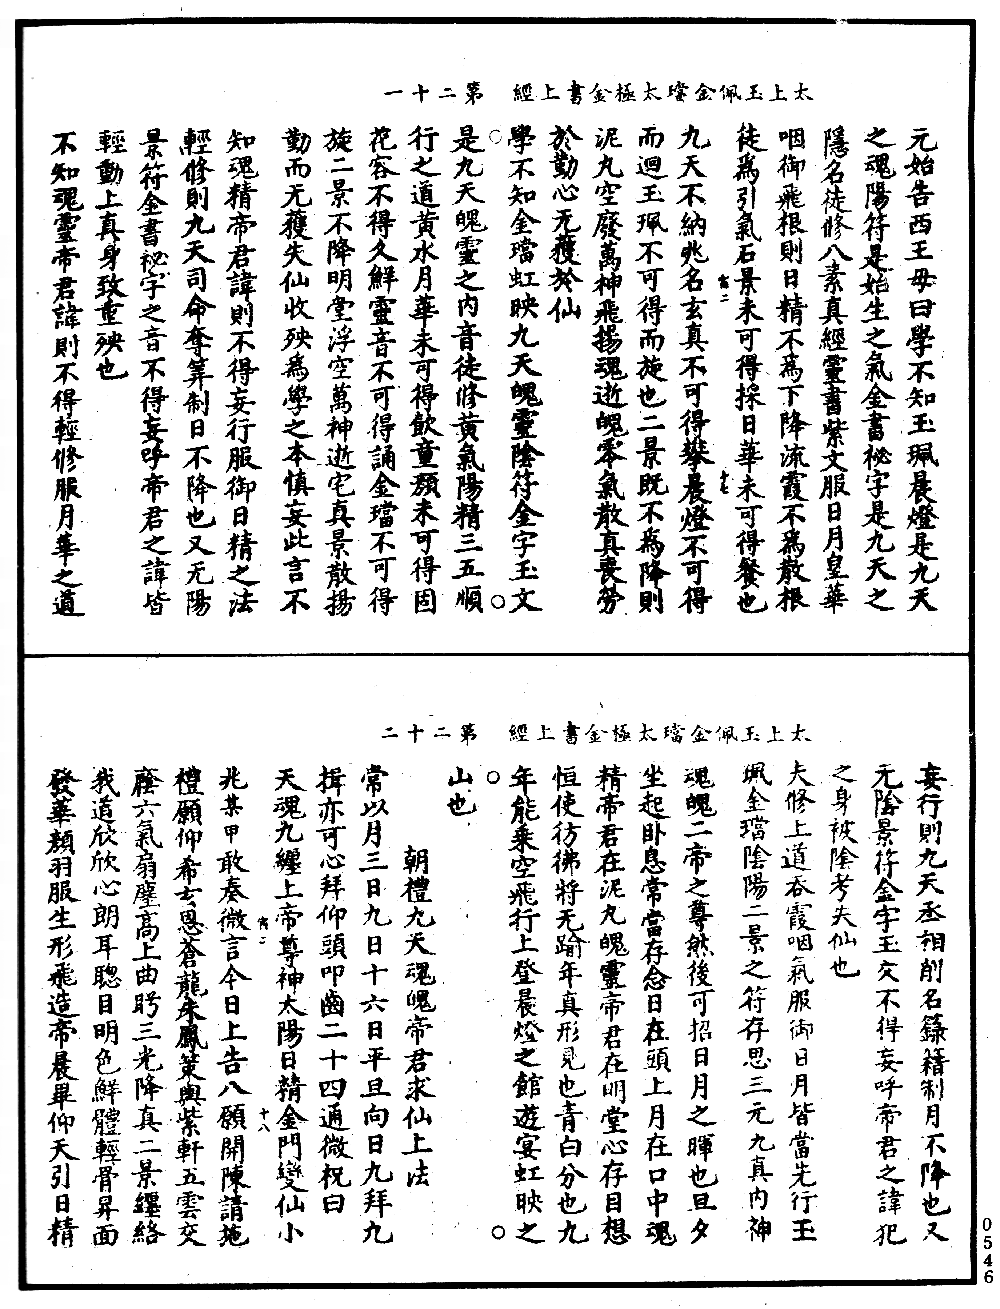 太上玉佩金璫太極金書上經　第二十一
元始告西王母曰學不知玉珮晨燈是九天
之魂陽符是始生之氣金書祕字是九天之
隱名徒修八素真經靈書紫文服日月皇華
咽御飛根則日精不為下降流霞不為散根
徒為引氣石景未可得採日華未可得餐也
九天不納兆名玄真不可得攀晨燈不可得
而迴玉珮不可得而施也二景既不為降則
泥丸空廢萬神飛揚魂逝魄零氣散真喪勞
於勤心无獲於仙
學不知金璫虹映九天魄靈陰符金字玉文
是九天魄靈之內音徒修黃氣陽精三五順
行之道黃水月華未可得飲童顏未可得固
花容不得久鮮靈音不可得誦金璫不可得
旋二景不降明堂浮空萬神逝宅真景散揚
勤而无獲失仙收殃為學之本慎妄此言不
知魂精帝君諱則不得妄行服御日精之法
輕修則九天司命奪筭制日不降也又无陽
景符金書祕字之音不得妄呼帝君之諱皆
輕動上真身致重殃也
不知魂靈帝君諱則不得輕修服月華之道
太上玉佩金璫太極金書上經　第二十二
妄行則九天丞相削名籙籍制月不降也又
无陰景符金字玉文不得妄呼帝君之諱犯
之身被陰考失仙也
夫修上道吞霞咽氣服御日月皆當先行玉
珮金璫陰陽二景之符存思三元九真內神
魂魄二帝之尊然後可招日月之暉也旦夕
坐起卧息常當存念日在頭上月在口中魂
精帝君在泥丸魄靈帝君在明堂心存目想
恒使彷彿將无踰年真形見也青白分也九
年能乘空飛行上登晨燈之館遊宴虹映之
山也
朝禮九天魂魄帝君求仙上法
常以月三日九日十六日平旦向日九拜九
揖亦可心拜仰頭叩齒二十四通微祝曰
天魂九纏上帝尊神太陽日精金門變仙小
兆某甲敢奏微言今日上告八願開陳請施
禮願仰希玄恩蒼龍朱鳳策輿紫軒五雲交
蔭六氣扇塵高上曲眄三光降真二景纏絡
我道欣欣心朗耳聰目明色鮮體輕骨昇面
發華顏羽服生形飛造帝晨畢仰天引日精
0546